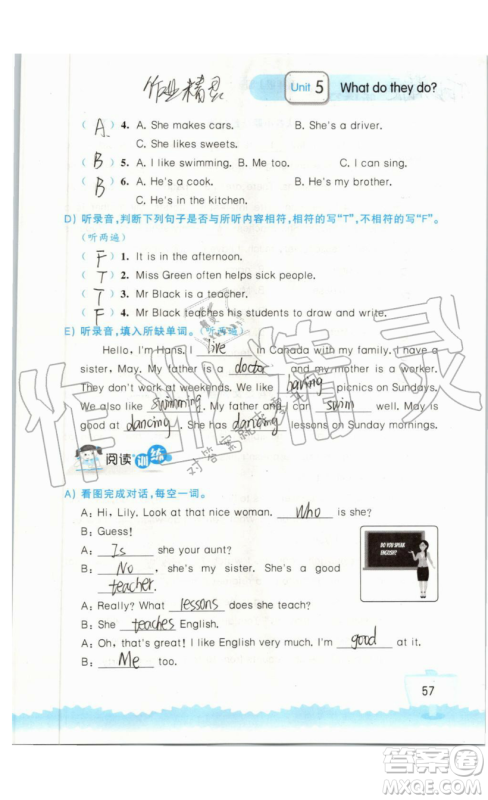 作业精灵
Unit 5 What do they do?
( A ) 4. A. She makes cars. B. She's a driver.
C. She likes sweets.
( B ) 5. A. I like swimming. B. Me too. C. I can sing.
( B ) 6. A. He's a cook. B. He's my brother.
C. He's in the kitchen.
D) 听录音,判断下列句子是否与所听内容相符,相符的写“T”,不相符的写“F”。
(听两遍)
( F ) 1. It is in the afternoon.
( T ) 2. Miss Green often helps sick people.
( T ) 3. Mr Black is a teacher.
( F ) 4. Mr Black teaches his students to draw and write.
E) 听录音,填入所缺单词。(听两遍)
Hello, I'm Hans. I live in Canada with my family. I have a
sister, May. My father is a doctor and my mother is a worker.
They don't work at weekends. We like having picnics on Sundays.
We also like swimming. My father and I can swim well. May is
good at dancing. She has dancing lessons on Sunday mornings.
阅读训练
A) 看图完成对话,每空一词。
A: Hi, Lily. Look at that nice woman. Who is she?
B: Guess!
A: Is she your aunt?
B: No, she's my sister. She's a good
teacher.
A: Really? What lessons does she teach?
B: She teaches English.
A: Oh, that's great! I like English very much. I'm good at it.
B: Me too.
DO YOU SPEAK
ENGLISH?
57
作业精灵
答案圈